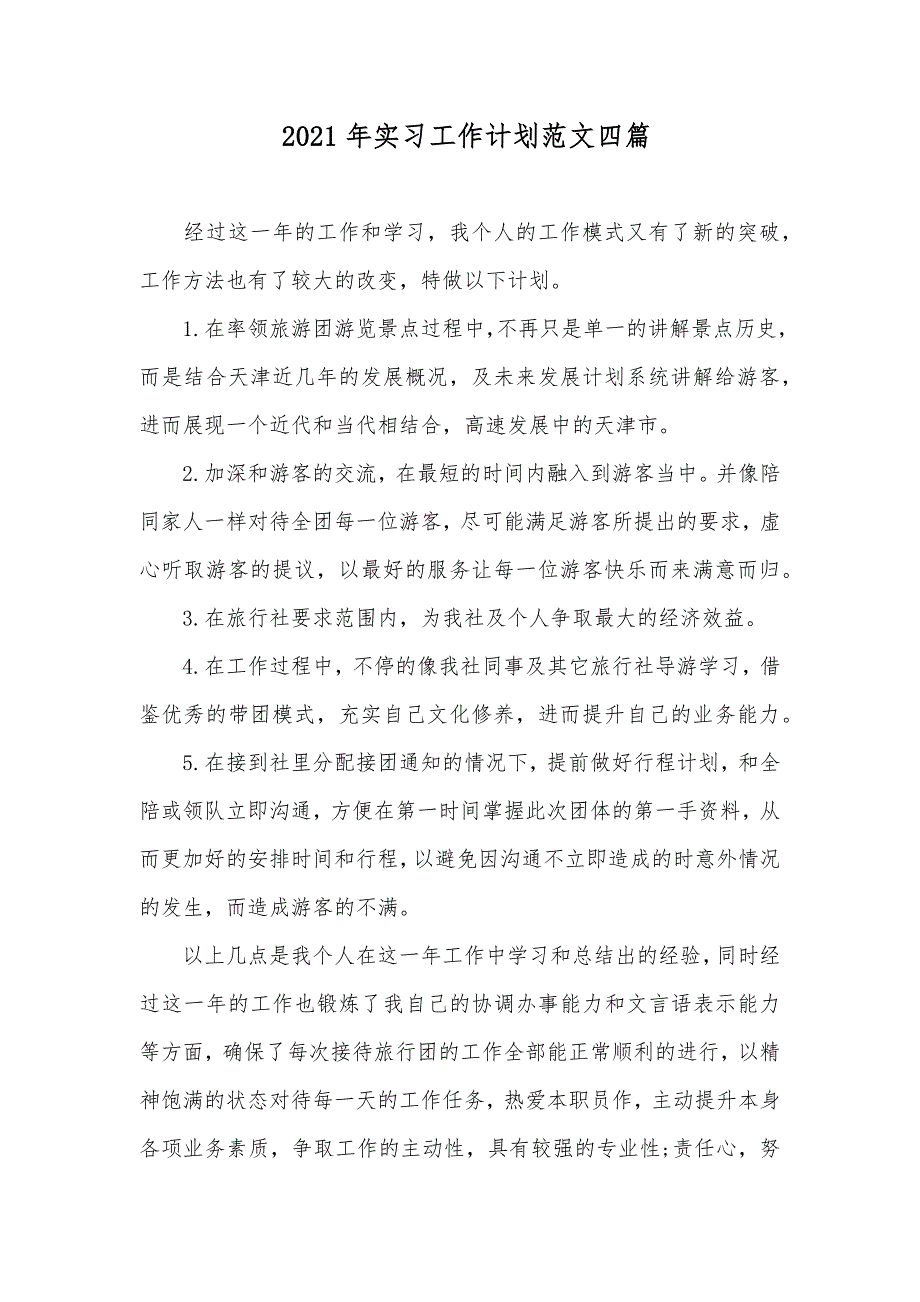 2021 年实习工作计划范文四篇
经过这一年的工作和学习，我个人的工作模式又有了新的突破，
工作方法也有了较大的改变，特做以下计划。
1.在率领旅游团游览景点过程中，不再只是单一的讲解景点历史，
而是结合天津近几年的发展概况，及未来发展计划系统讲解给游客，
进而展现一个近代和当代相结合，高速发展中的天津市。
2.加深和游客的交流，在最短的时间内融入到游客当中。并像陪
同家人一样对待全团每一位游客，尽可能满足游客所提出的要求，虚
心听取游客的提议，以最好的服务让每一位游客快乐而来满意而归。
3.在旅行社要求范围内，为我社及个人争取最大的经济效益。
4.在工作过程中，不停的像我社同事及其它旅行社导游学习，借
鉴优秀的带团模式，充实自己文化修养，进而提升自己的业务能力。
5.在接到社里分配接团通知的情况下，提前做好行程计划，和全
陪或领队立即沟通，方便在第一时间掌握此次团体的第一手资料，从
而更加好的安排时间和行程，以避免因沟通不立即造成的时意外情况
的发生，而造成游客的不满。
以上几点是我个人在这一年工作中学习和总结出的经验，同时经
过这一年的工作也锻炼了我自己的协调办事能力和文言语表示能力
等方面，确保了每次接待旅行团的工作全部能正常顺利的进行，以精
神饱满的状态对待每一天的工作任务，热爱本职员作，主动提升本身
各项业务素质，争取工作的主动性，具有较强的专业性;责任心，努